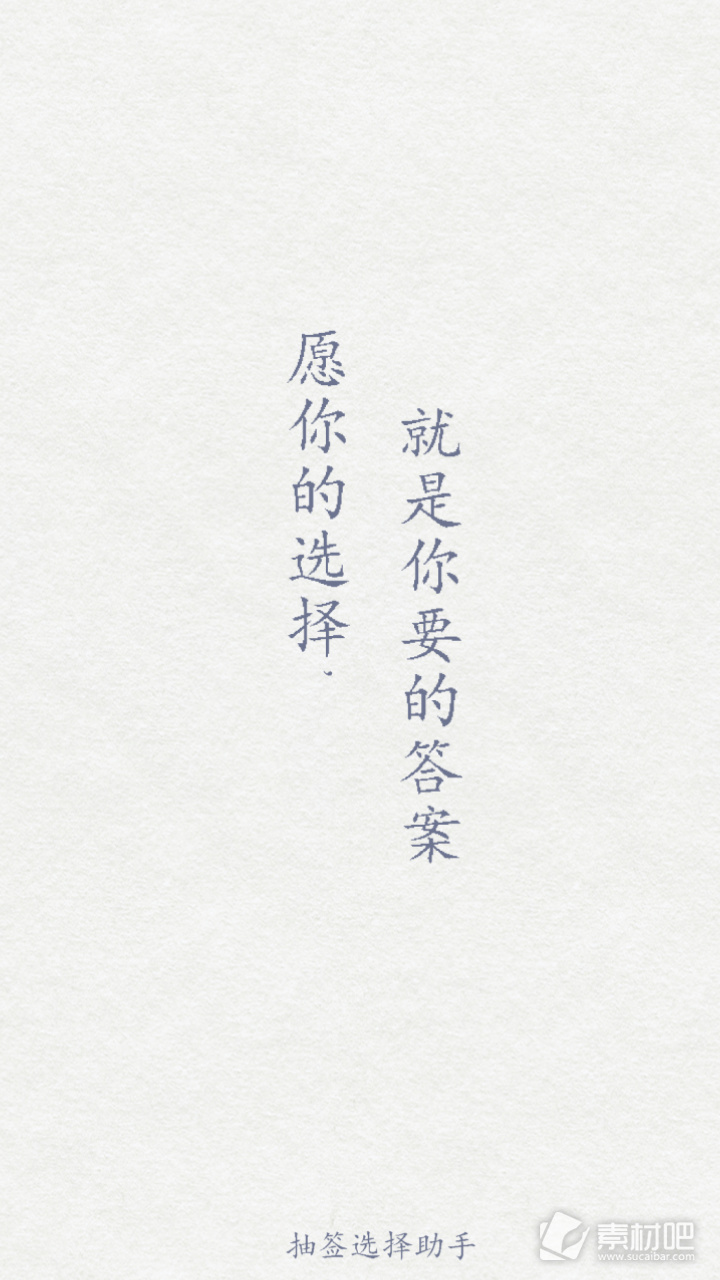 愿你的选择·
就是你要的答案
抽签选择助手
素材吧
www.sucaibar.com